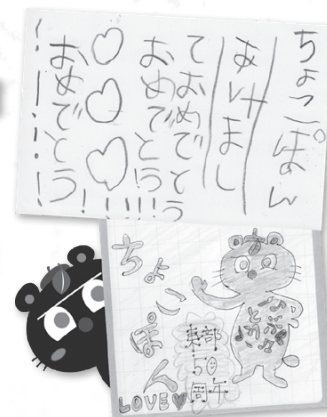 ちょこぽん
あけまし
ておめでとう
おめでとう!!
♡♡♡!
おめでとう!
!!!!!
ちょこぽん
50
周年
LOVE♥